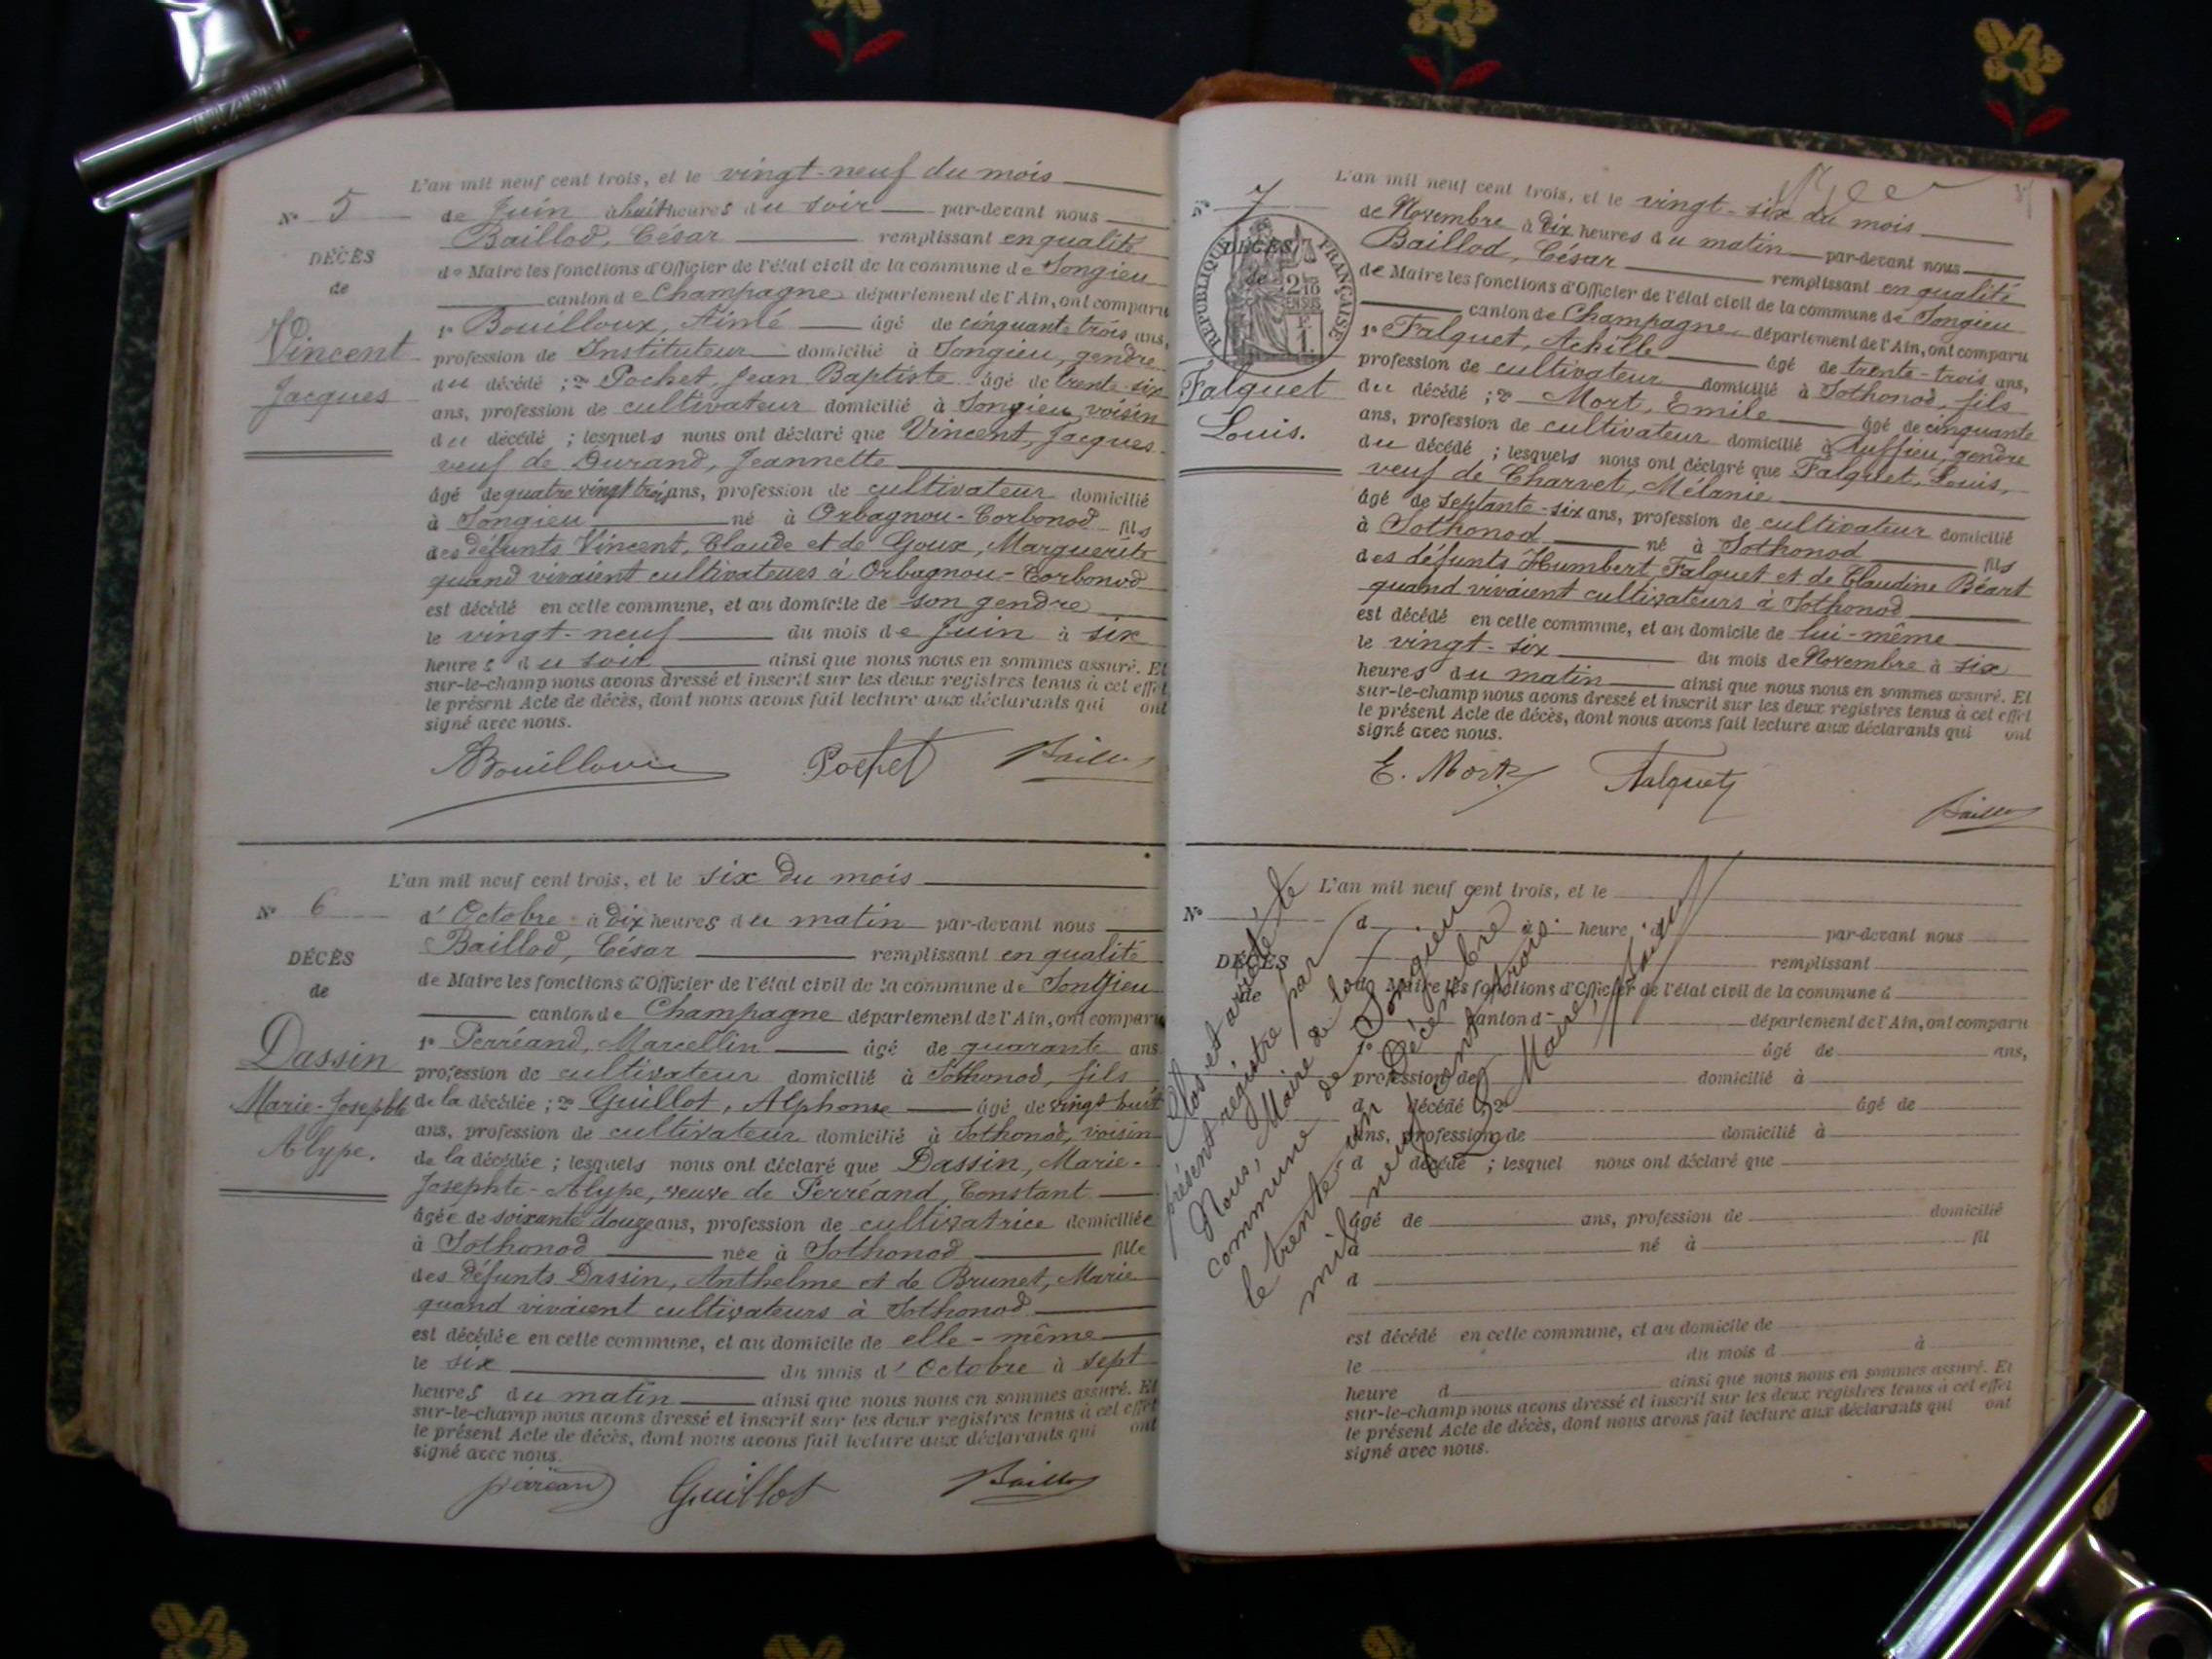 L'an mil neuf cent trois, et le vingt-neuf du mois
N° 5
de Juin à huit heures du soir par-devant nous
Baillod, César remplissant en qualité
DÉCÈS
de Maire les fonctions d'Officier de l'état civil de la commune de Songieu
de
canton de Champagne département de l'Ain, ont comparu
1° Bouilloux, Aimé âgé de cinquante trois ans,
Vincent
profession de Instituteur domicilié à Songieu, gendre
Jacques
du décédé ; 2° Pochet, Jean Baptiste âgé de trente-six
ans, profession de cultivateur domicilié à Songieu, voisin
du décédé ; lesquels nous ont déclaré que Vincent, Jacques
veuf de Durand, Jeannette
âgé de quatre vingt trois ans, profession de cultivateur domicilié
à Songieu né à Orbagnou-Corbonod fils
des défunts Vincent, Claude et de Goux, Marguerite
quand vivaient cultivateurs à Orbagnou-Corbonod
est décédé en cette commune, et au domicile de son gendre
le vingt-neuf du mois de Juin à six
heures du soir ainsi que nous nous en sommes assuré. Et
sur-le-champ nous avons dressé et inscrit sur les deux registres tenus à cet effet
le présent Acte de décès, dont nous avons fait lecture aux déclarants qui ont
signé avec nous.
ABouilloux Pochet Baillod
L'an mil neuf cent trois, et le six du mois
N° 6
d'Octobre à dix heures du matin par-devant nous
Baillod, César remplissant en qualité
DÉCÈS
de Maire les fonctions d'Officier de l'état civil de la commune de Songieu
de
canton de Champagne département de l'Ain, ont comparu
Dassin
1° Perréand, Marcellin âgé de quarante ans
profession de cultivateur domicilié à Sothonod, fils
Marie-Josephte
de la décédée ; 2° Guillot, Alphonse âgé de vingt huit
Alype.
ans, profession de cultivateur domicilié à Sothonod, voisin
de la décédée ; lesquels nous ont déclaré que Dassin, Marie-
Josephte-Alype, veuve de Perréand, Constant
âgée de soixante douze ans, profession de cultivatrice domiciliée
à Sothonod née à Sothonod fille
des défunts Dassin, Anthelme et de Brunet, Marie
quand vivaient cultivateurs à Sothonod
est décédée en cette commune, et au domicile de elle-même
le six du mois d'Octobre à sept
heures du matin ainsi que nous nous en sommes assuré. Et
sur-le-champ nous avons dressé et inscrit sur les deux registres tenus à cet effet
le présent Acte de décès, dont nous avons fait lecture aux déclarants qui ont
signé avec nous.
perréand Guillot Baillod
L'an mil neuf cent trois, et le vingt-six du mois
N° 7
de Novembre à dix heures du matin par-devant nous
Baillod, César remplissant en qualité
DÉCÈS
de
RÉPUBLIQUE FRANÇAISE
de Maire les fonctions d'Officier de l'état civil de la commune de Songieu
canton de Champagne département de l'Ain, ont comparu
1° Falquet, Achille âgé de trente-trois ans,
profession de cultivateur domicilié à Sothonod, fils
Falquet
Louis.
du décédé ; 2° Mort, Emile âgé de cinquante
ans, profession de cultivateur domicilié à Ruffieu, gendre
du décédé ; lesquels nous ont déclaré que Falquet, Louis,
veuf de Charvet, Mélanie
âgé de septante-six ans, profession de cultivateur domicilié
à Sothonod né à Sothonod fils
des défunts Humbert Falquet et de Claudine Béart
quand vivaient cultivateurs à Sothonod
est décédé en cette commune, et au domicile de lui-même
le vingt-six du mois de Novembre à six
heures du matin ainsi que nous nous en sommes assuré. Et
sur-le-champ nous avons dressé et inscrit sur les deux registres tenus à cet effet
le présent Acte de décès, dont nous avons fait lecture aux déclarants qui ont
signé avec nous.
E. Mort Falquet
Baillod
L'an mil neuf cent trois, et le
N°
d à heure d par-devant nous
DÉCÈS
remplissant
de
d Maire les fonctions d'Officier de l'état civil de la commune d
canton d département de l'Ain, ont comparu
1° âgé de ans,
profession de domicilié à
d décédé ; 2° âgé de
ans, profession de domicilié à
d décédé ; lesquel nous ont déclaré que
âgé de ans, profession de domicilié
à né à fil
d
est décédé en cette commune, et au domicile de
le du mois d à
heure d ainsi que nous nous en sommes assuré. Et
sur-le-champ nous avons dressé et inscrit sur les deux registres tenus à cet effet
le présent Acte de décès, dont nous avons fait lecture aux déclarants qui ont
signé avec nous.
Clos et arrêté le
présent registre par
Nous, Maire de la
commune de Songieu
le trente-un Décembre
mil neuf cent trois
Le Maire, Baillod